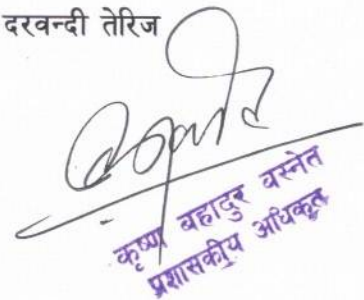 दरवन्दी तेरिज
कृष्ण बहादुर वस्नेत
प्रशासकीय अधिकृत